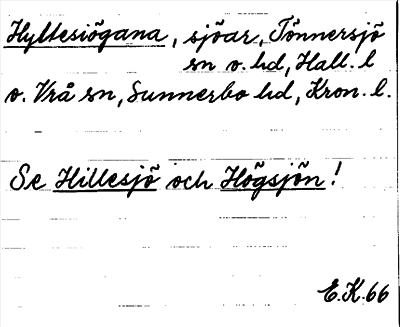 Hyltesiögana, sjöar, Tönnersjö
sn o. hd, Hall. l
o. Vrå sn, Sunnerbo hd, Kron. l.
Se Hillesjö och Högsjön!
E.K. 66